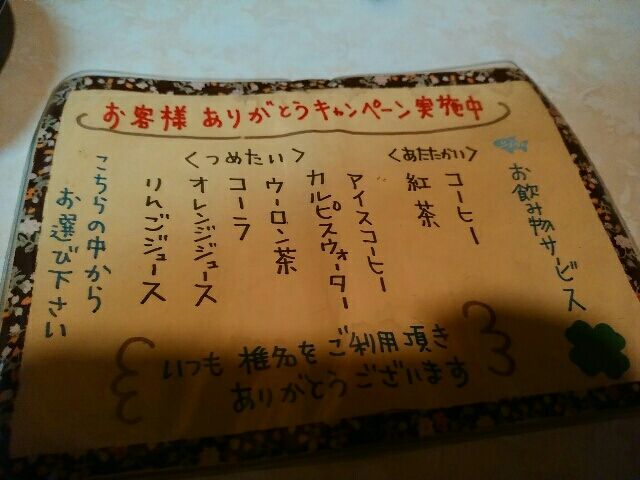 お客様 ありがとうキャンペーン実施中
お飲み物サービス
<あたたかい>
コーヒー
紅茶
<つめたい>
アイスコーヒー
カルピスウォーター
ウーロン茶
コーラ
オレンジジュース
りんごジュース
こちらの中から
お選び下さい
いつも 椎名をご利用頂き
ありがとうございます